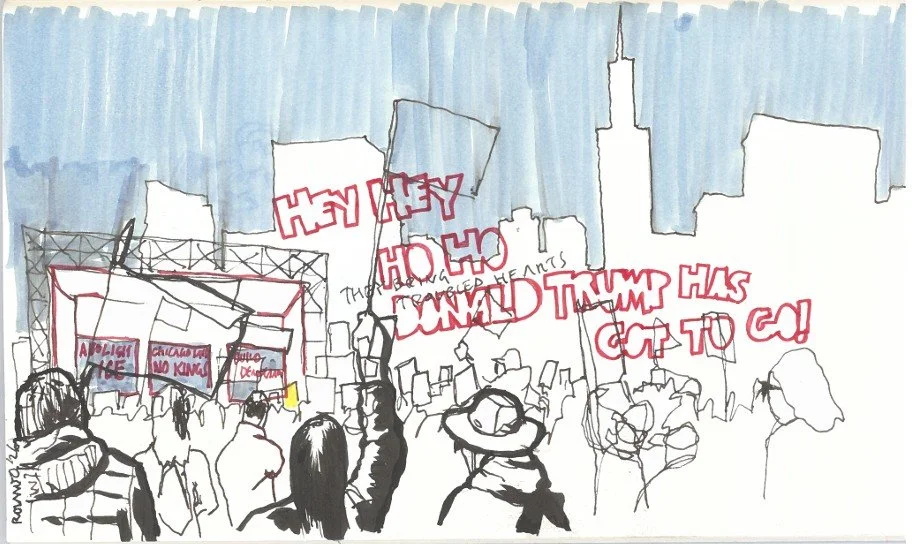 HEY HEY
HO HO
THEY BRING
TROUBLED HEARTS
DONALD TRUMP HAS
GOT TO GO!
ABOLISH
ICE
CHICAGO
NO KINGS
BUILD
DEMOCRACY